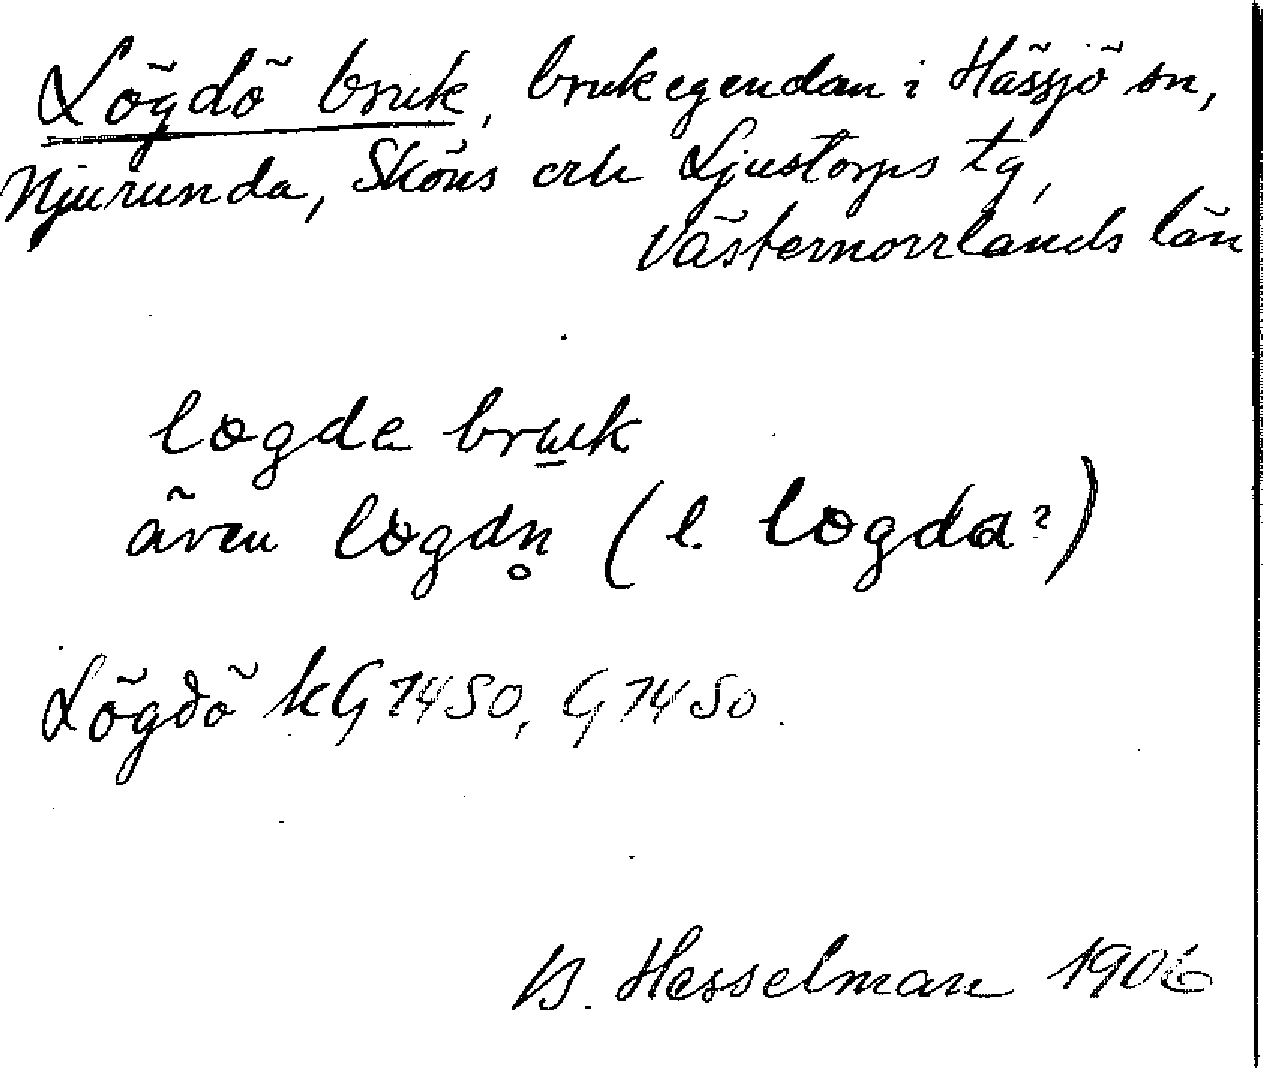 Lögdö bruk, bruksegendom i Hässjö sn,
Njurunda, Sköns och Ljustorps tg,
Västernorrlands län
løgda bruk
även løgdn̥ (l. løgda?)
Lögdö kG 1450, G 1450.
B. Hesselman 1906